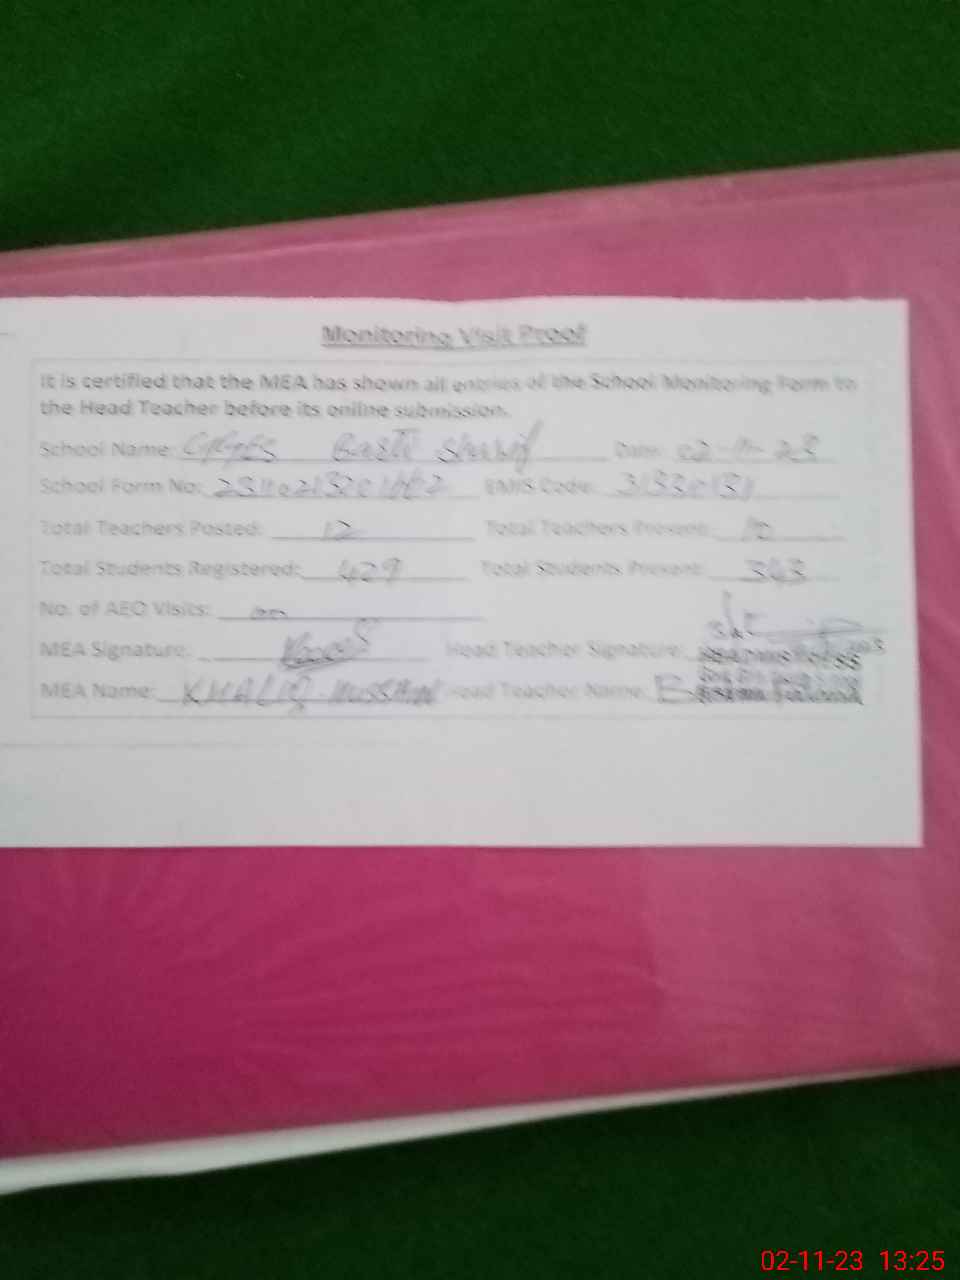 Monitoring Visit Proof
It is certified that the MEA has shown all entries of the School Monitoring Form to
the Head Teacher before its online submission.
School Name: GGES Basti Sharif Date: 02-11-23
School Form No: EMIS Code:
Total Teachers Posted: 12 Total Teachers Present: 10
Total Students Registered: 429 Total Students Present: 343
No. of AEO Visits:
MEA Signature: Head Teacher Signature: Headmistress
MEA Name: KHALIQ HUSSAIN Head Teacher Name:
02-11-23 13:25